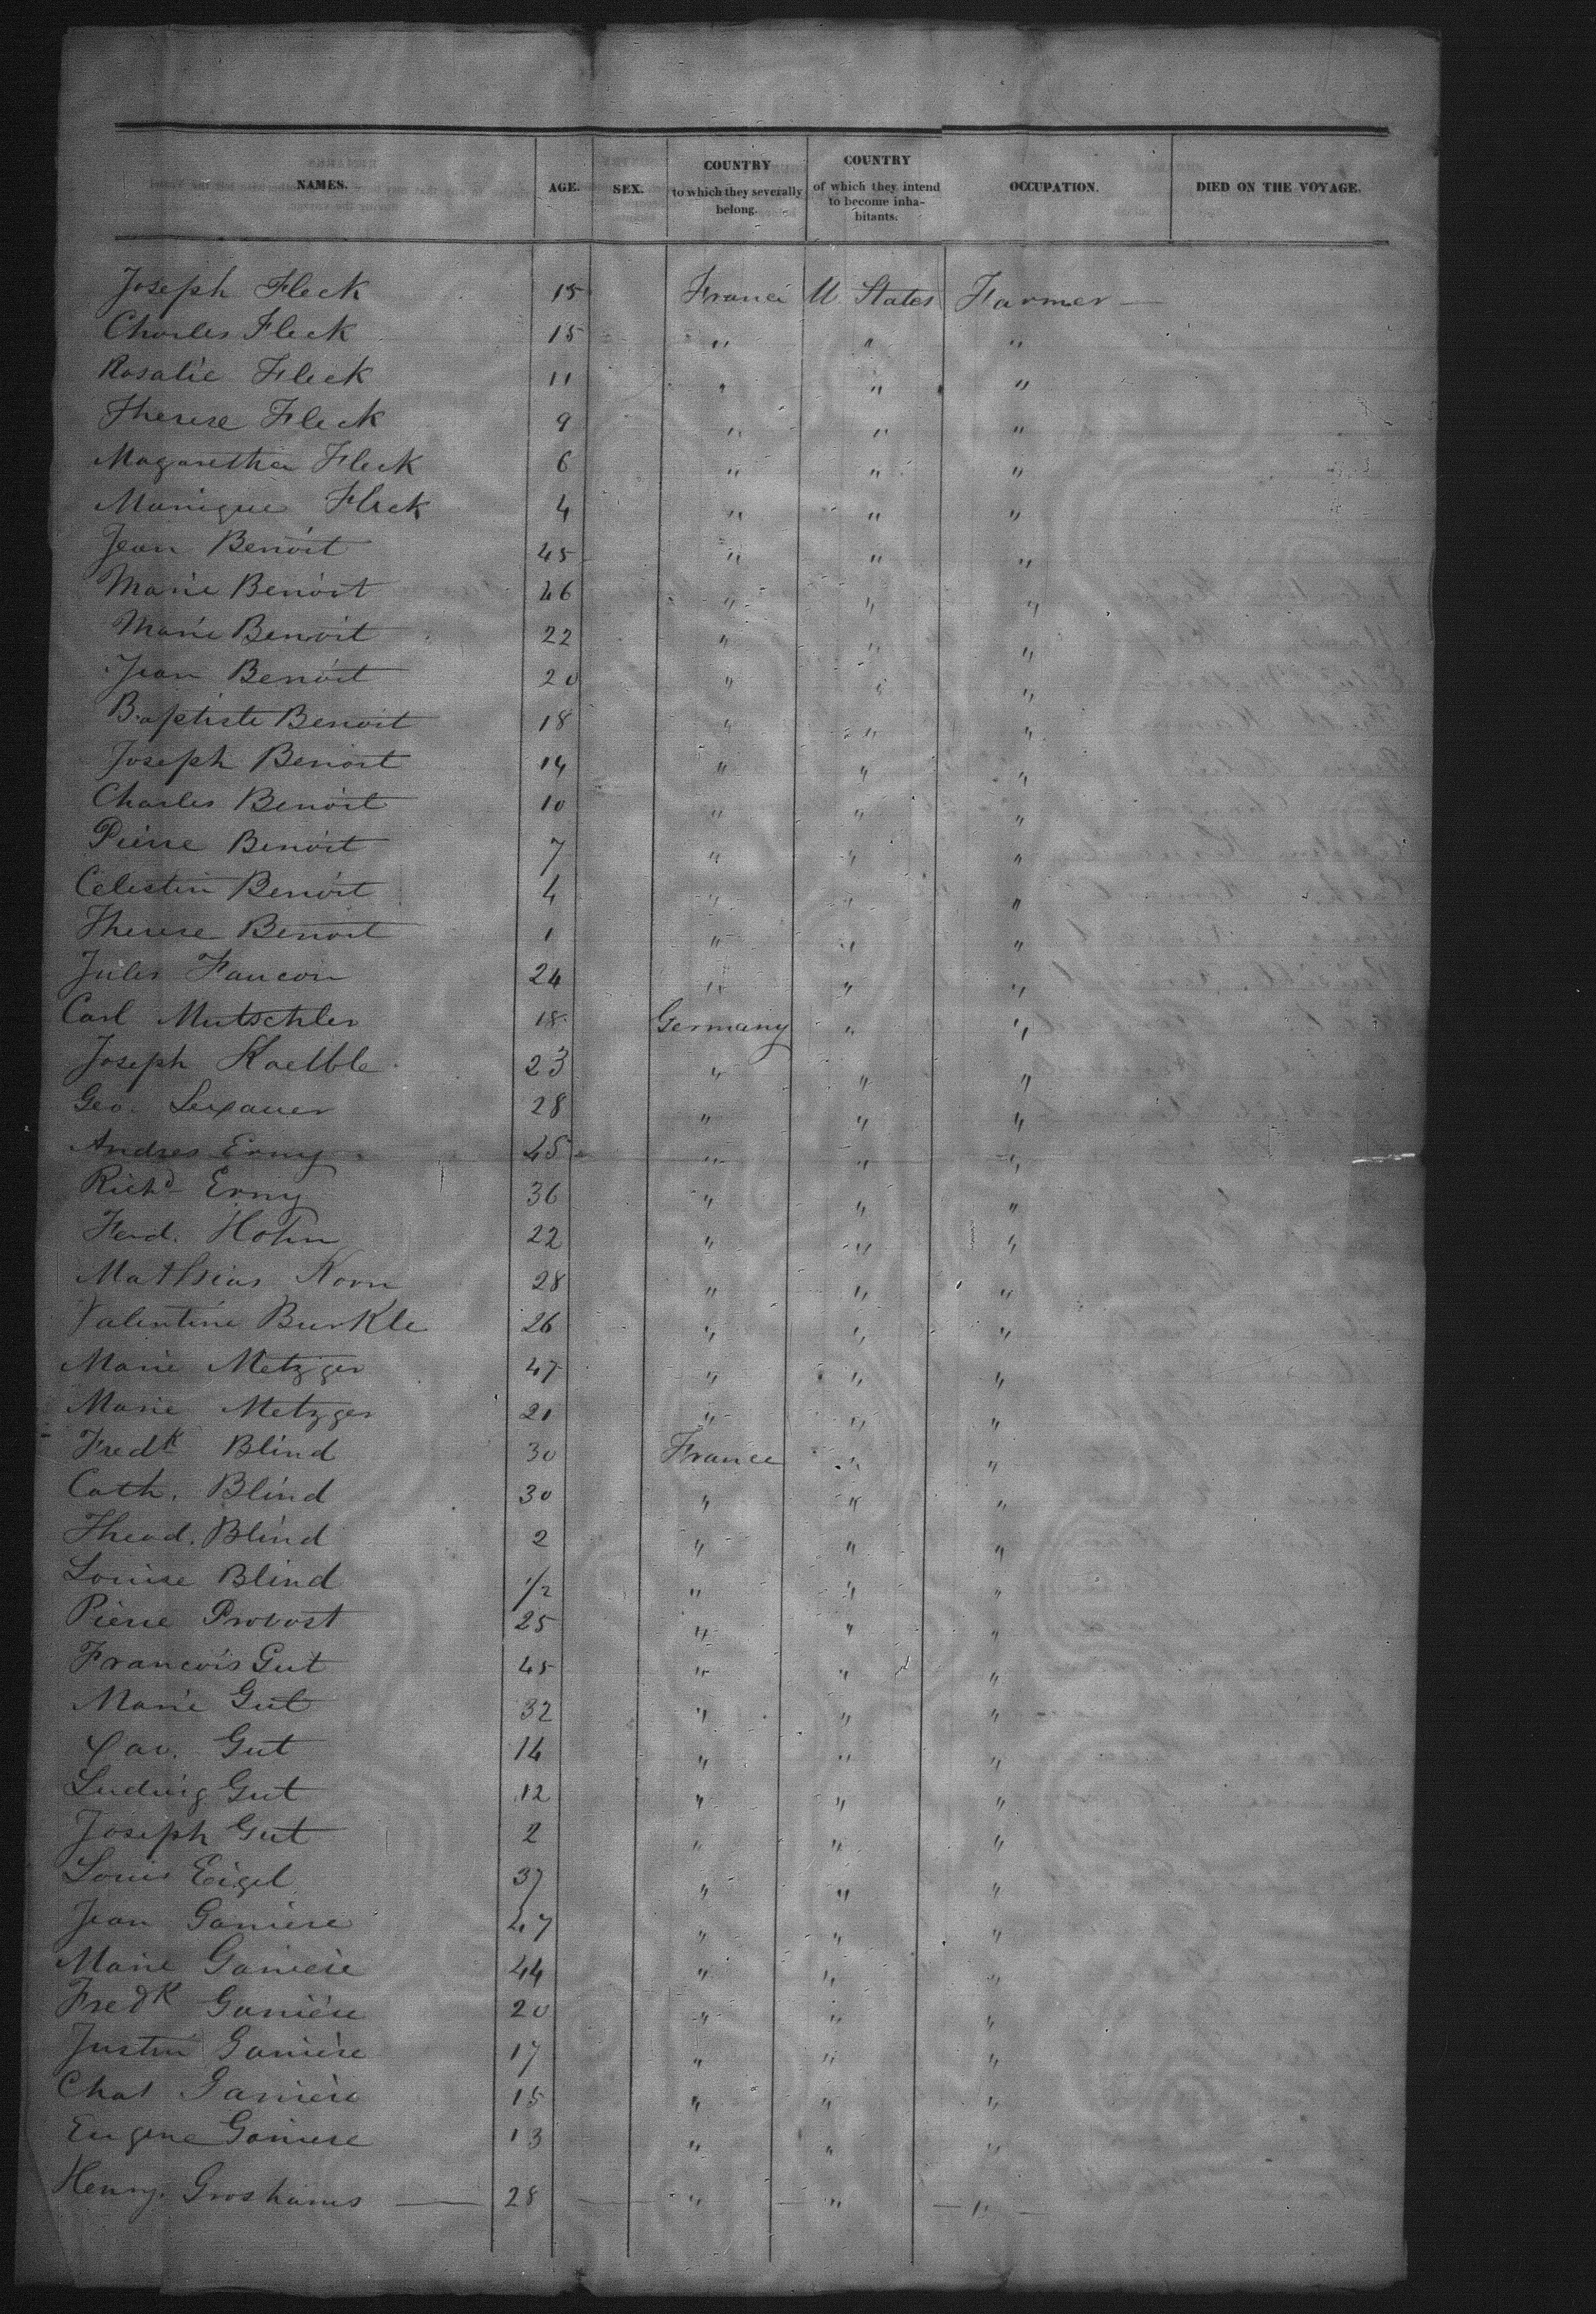 NAMES. AGE. SEX. COUNTRY to which they severally belong. COUNTRY of which they intend to become inhabitants. OCCUPATION. DIED ON THE VOYAGE.
Joseph Fleck 15 France U States Farmer —
Charles Fleck 15 " " "
Rosalie Fleck 11 " " "
Therese Fleck 9 " " "
Magaretha Fleck 6 " " "
Monique Fleck 4 " " "
Jean Benoit 45 " " "
Marie Benoit 46 " " "
Marie Benoit 22 " " "
Jean Benoit 20 " " "
Baptiste Benoit 18 " " "
Joseph Benoit 14 " " "
Charles Benoit 10 " " "
Pierre Benoit 7 " " "
Celestin Benoit 4 " " "
Therese Benoit 1 " " "
Jules Faucon 24 " " "
Carl Mutschler 18 Germany " "
Joseph Kaelble 23 " " "
Geo. Lexauer 28 " " "
Andres Erny 45 " " "
Richd Erny 36 " " "
Ferd. Hohn 22 " " "
Mathias Korn 28 " " "
Valentine Burkle 26 " " "
Marie Metzger 47 " " "
Marie Metzger 21 " " "
Fredk Blind 30 France " "
Cath. Blind 30 " " "
Theod. Blind 2 " " "
Louise Blind 1/2 " " "
Pierre Provost 25 " " "
Francois Gut 45 " " "
Marie Gut 32 " " "
Xav. Gut 14 " " "
Ludwig Gut 12 " " "
Joseph Gut 2 " " "
Louis Eigel 37 " " "
Jean Ganiere 47 " " "
Marie Ganiere 44 " " "
Fredk Ganière 20 " " "
Justin Ganière 17 " " "
Chas Ganière 15 " " "
Eugene Ganiere 13 " " "
Henry. Groshams — 28 — " — " — " —